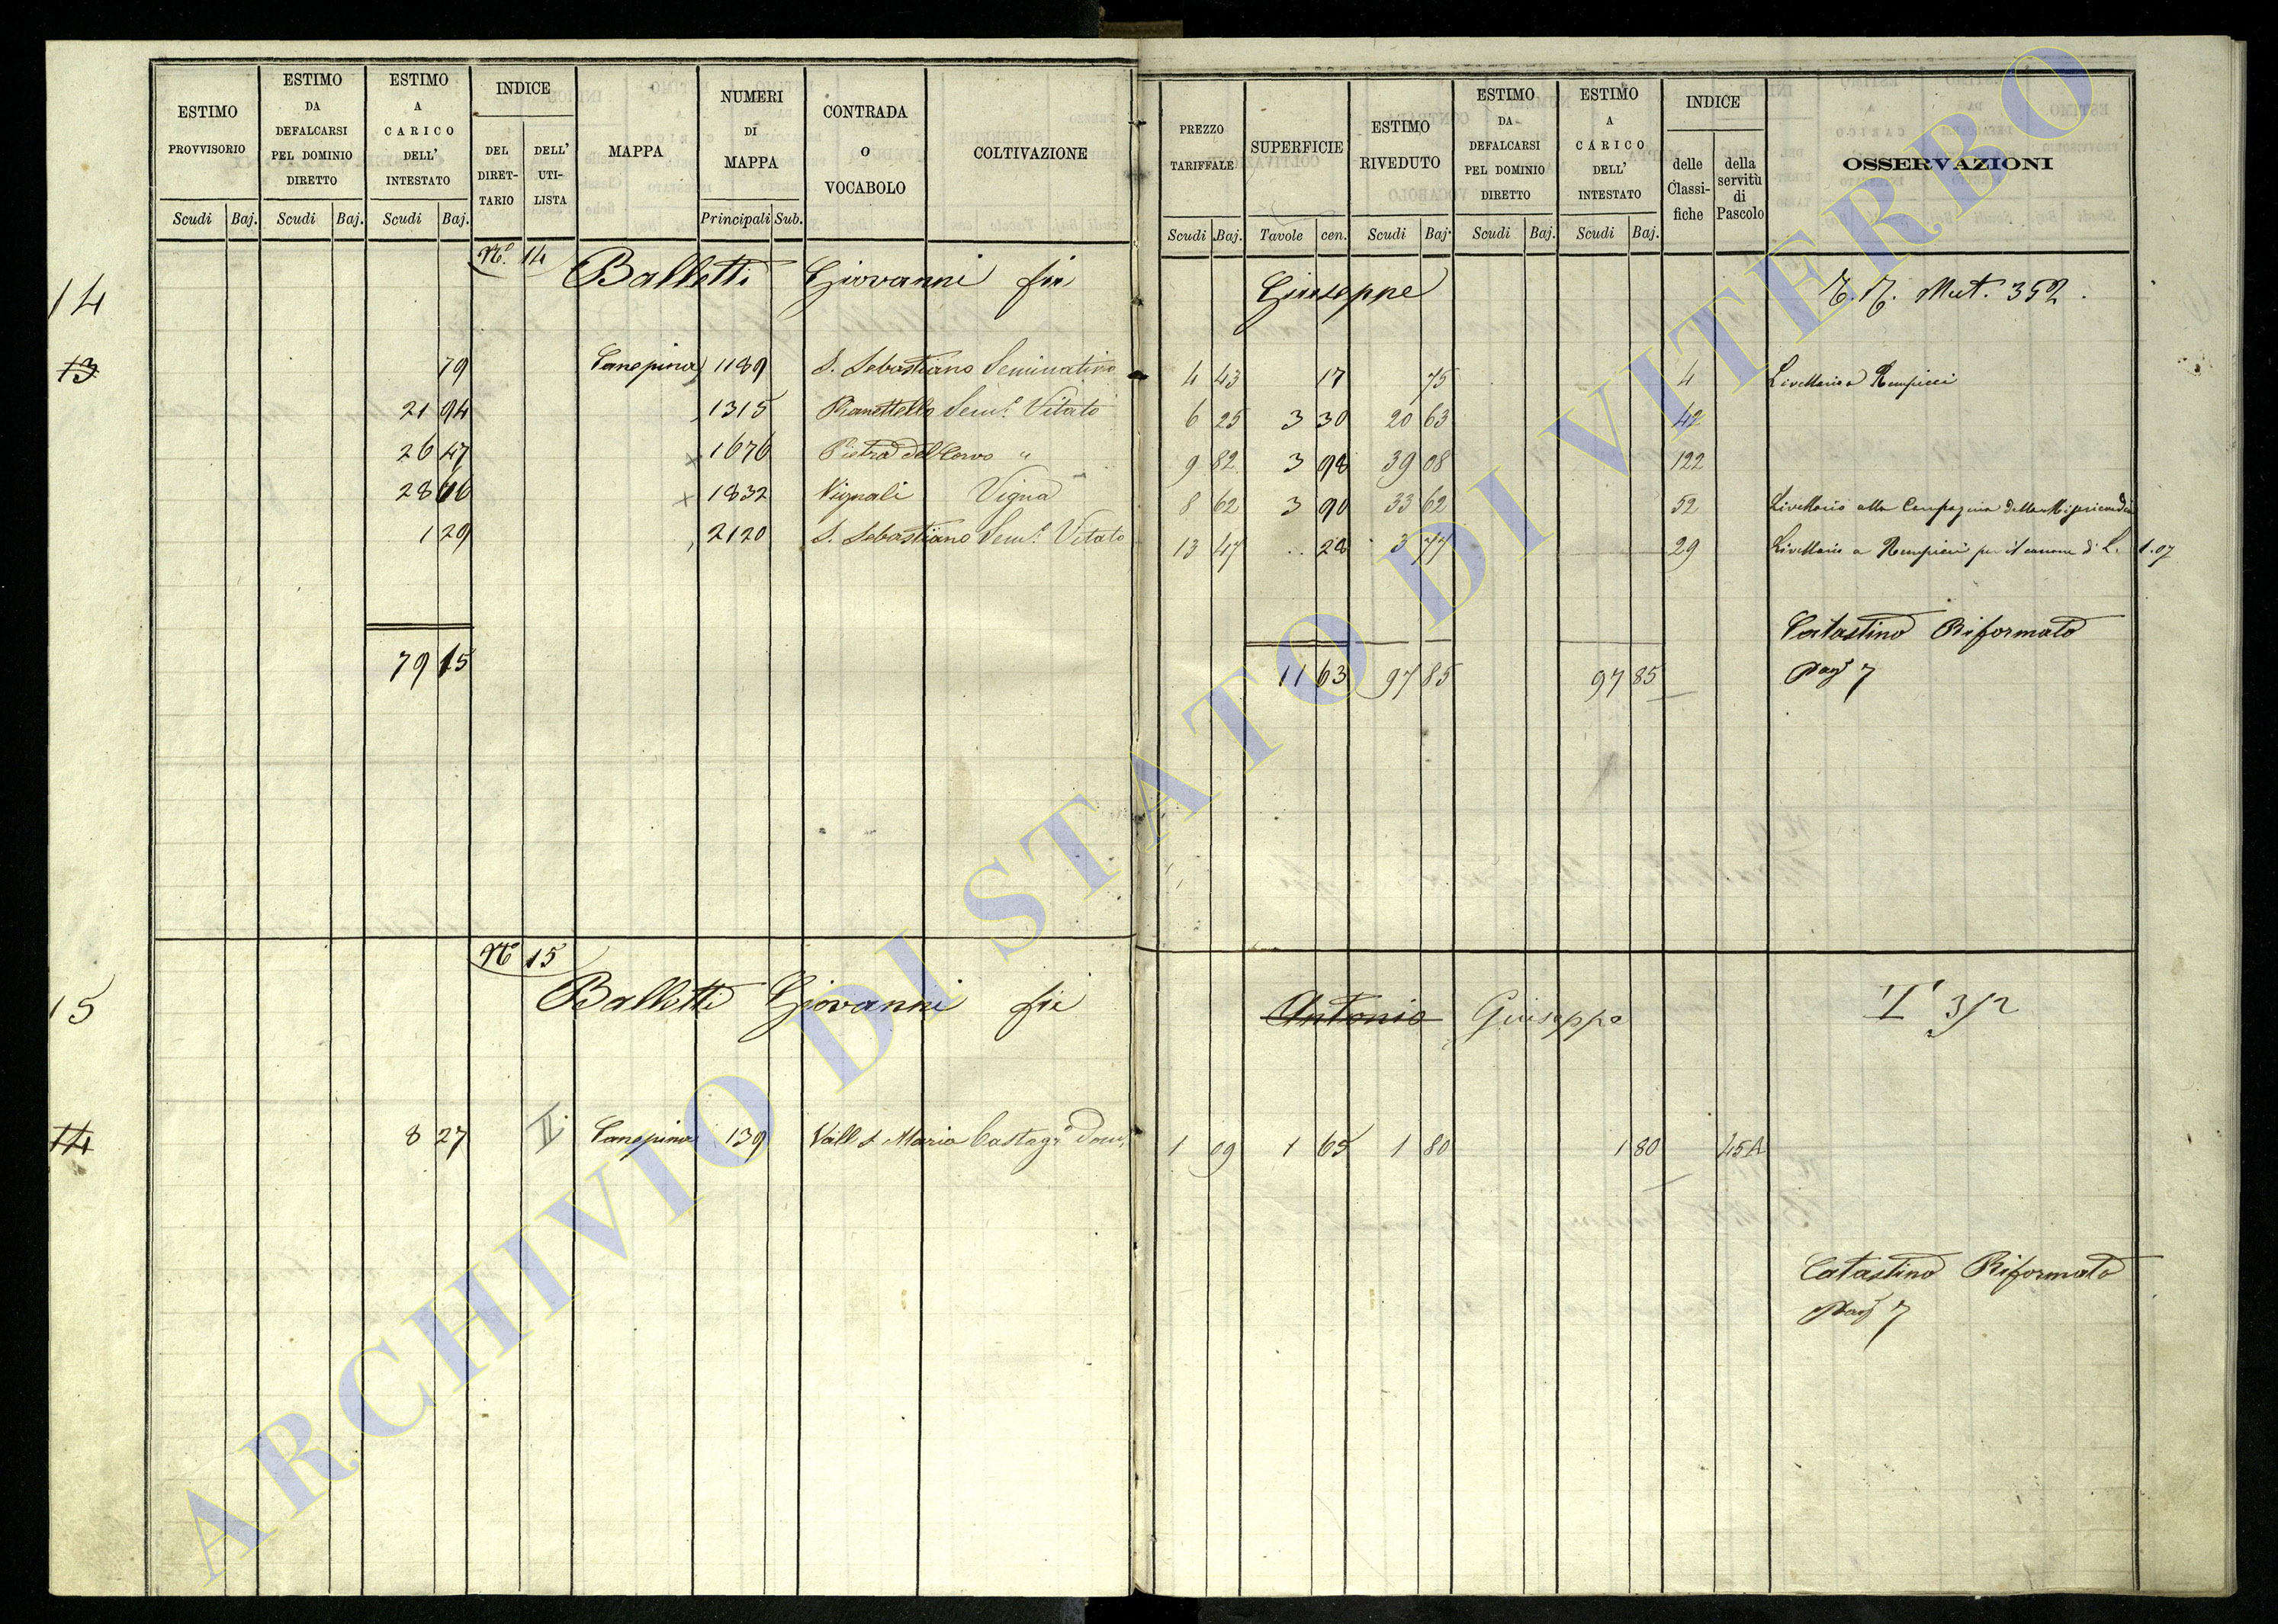 ESTIMO PROVVISORIO
ESTIMO DA DEFALCARSI PEL DOMINIO DIRETTO
ESTIMO A CARICO DELL' INTESTATO
INDICE
DEL DIRET-TARIO
DELL' UTI-LISTA
MAPPA
NUMERI DI MAPPA
CONTRADA O VOCABOLO
COLTIVAZIONE
Scudi Baj. Scudi Baj. Scudi Baj. Principali Sub.
PREZZO TARIFFALE
SUPERFICIE
ESTIMO RIVEDUTO
ESTIMO DA DEFALCARSI PEL DOMINIO DIRETTO
ESTIMO A CARICO DELL' INTESTATO
INDICE
delle Classi-fiche
della servitù di Pascolo
OSSERVAZIONI
Scudi Baj. Tavole cen. Scudi Baj. Scudi Baj. Scudi Baj.
N.º 14
14 Balletti Giovanni fu Giuseppe Mut. 352.
13 79 Canepina 1189 S. Sebastiano Seminativo 4 43 17 75 4 Livellario a
21 94 1315 Sem.º Vitato 6 25 3 30 20 63 42
26 47 1676 Pietra del Corvo " 9 82 3 98 39 08 122
28 66 1832 Vignali Vigna 8 62 3 90 33 62 52 Livellario alla Compagnia della Misericordia
1 29 2120 S. Sebastiano Sem.º Vitato 13 47 .. 28 3 77 29 Livellario a per il canone di L. 1.07
Catastino Riformato
79 15 11 63 97 85 97 85 Pag 7
Nº 15
15 Balletti Giovanni fu Antonio Giuseppe T 352
14 8 27 II Canepina 139 Vall S Maria Castagº Dom. 1 09 1 65 1 80 1 80 45A
Catastino Riformato
Pag 7
ARCHIVIO DI STATO DI VITERBO